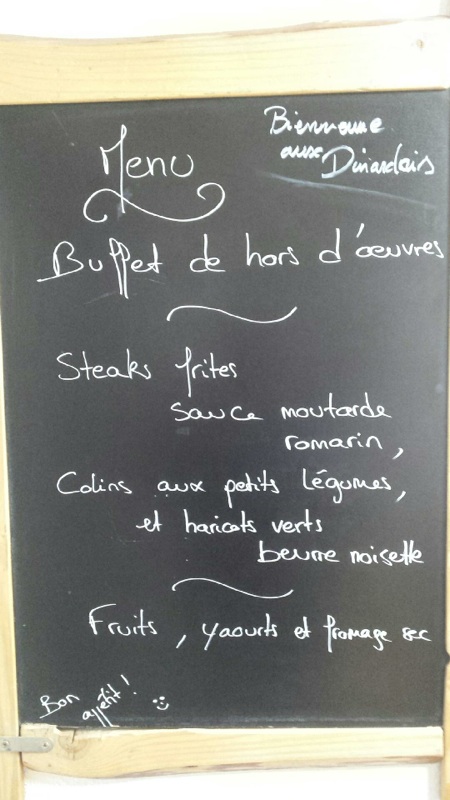 Bienvenue
aux Dinardais
Menu
Buffet de hors d'œuvres
Steaks frites
sauce moutarde
romarin,
Colins aux petits légumes,
et haricots verts
beurre noisette
Fruits, yaourts et fromage sec
Bon
appétit !